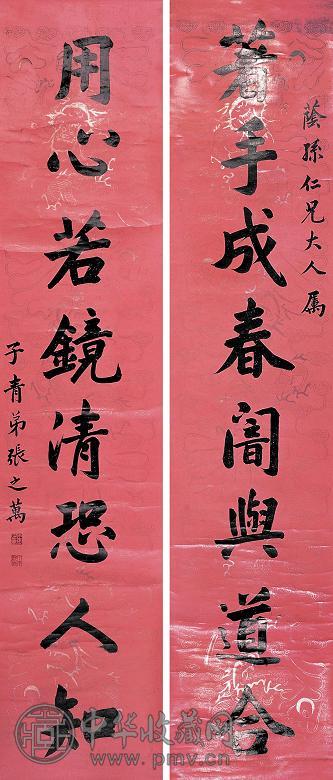 蔭孫仁兄大人属
著手成春闇與道合
用心若鏡清恐人知
子青弟張之萬
中华收藏网
www.pmv.cn